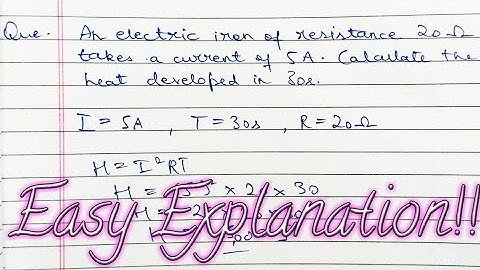 Que. An electric iron of resistance 20Ω
takes a current of 5A. Calculate the
heat developed in 30s.
I = 5A , T = 30s , R = 20Ω
H = I²RT
H = × 2 × 30
H =
H
Easy Explanation!!